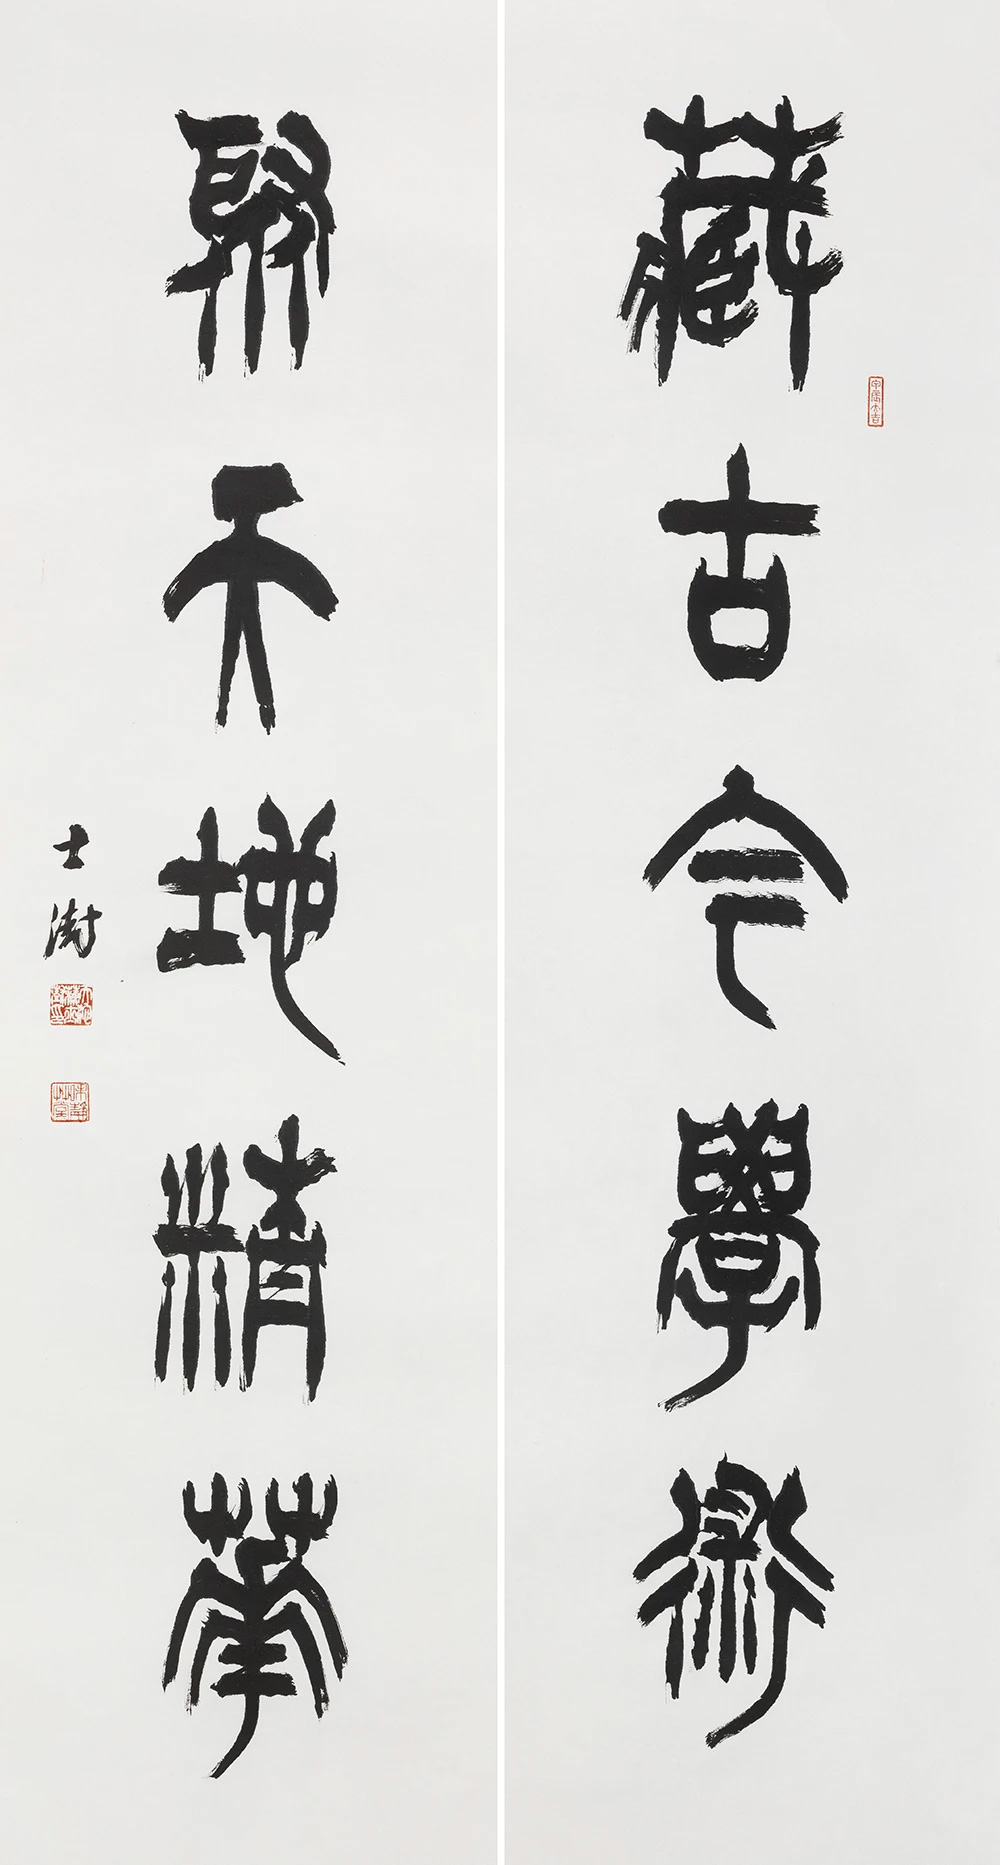 藏古今學術
聚天地精華
士澍